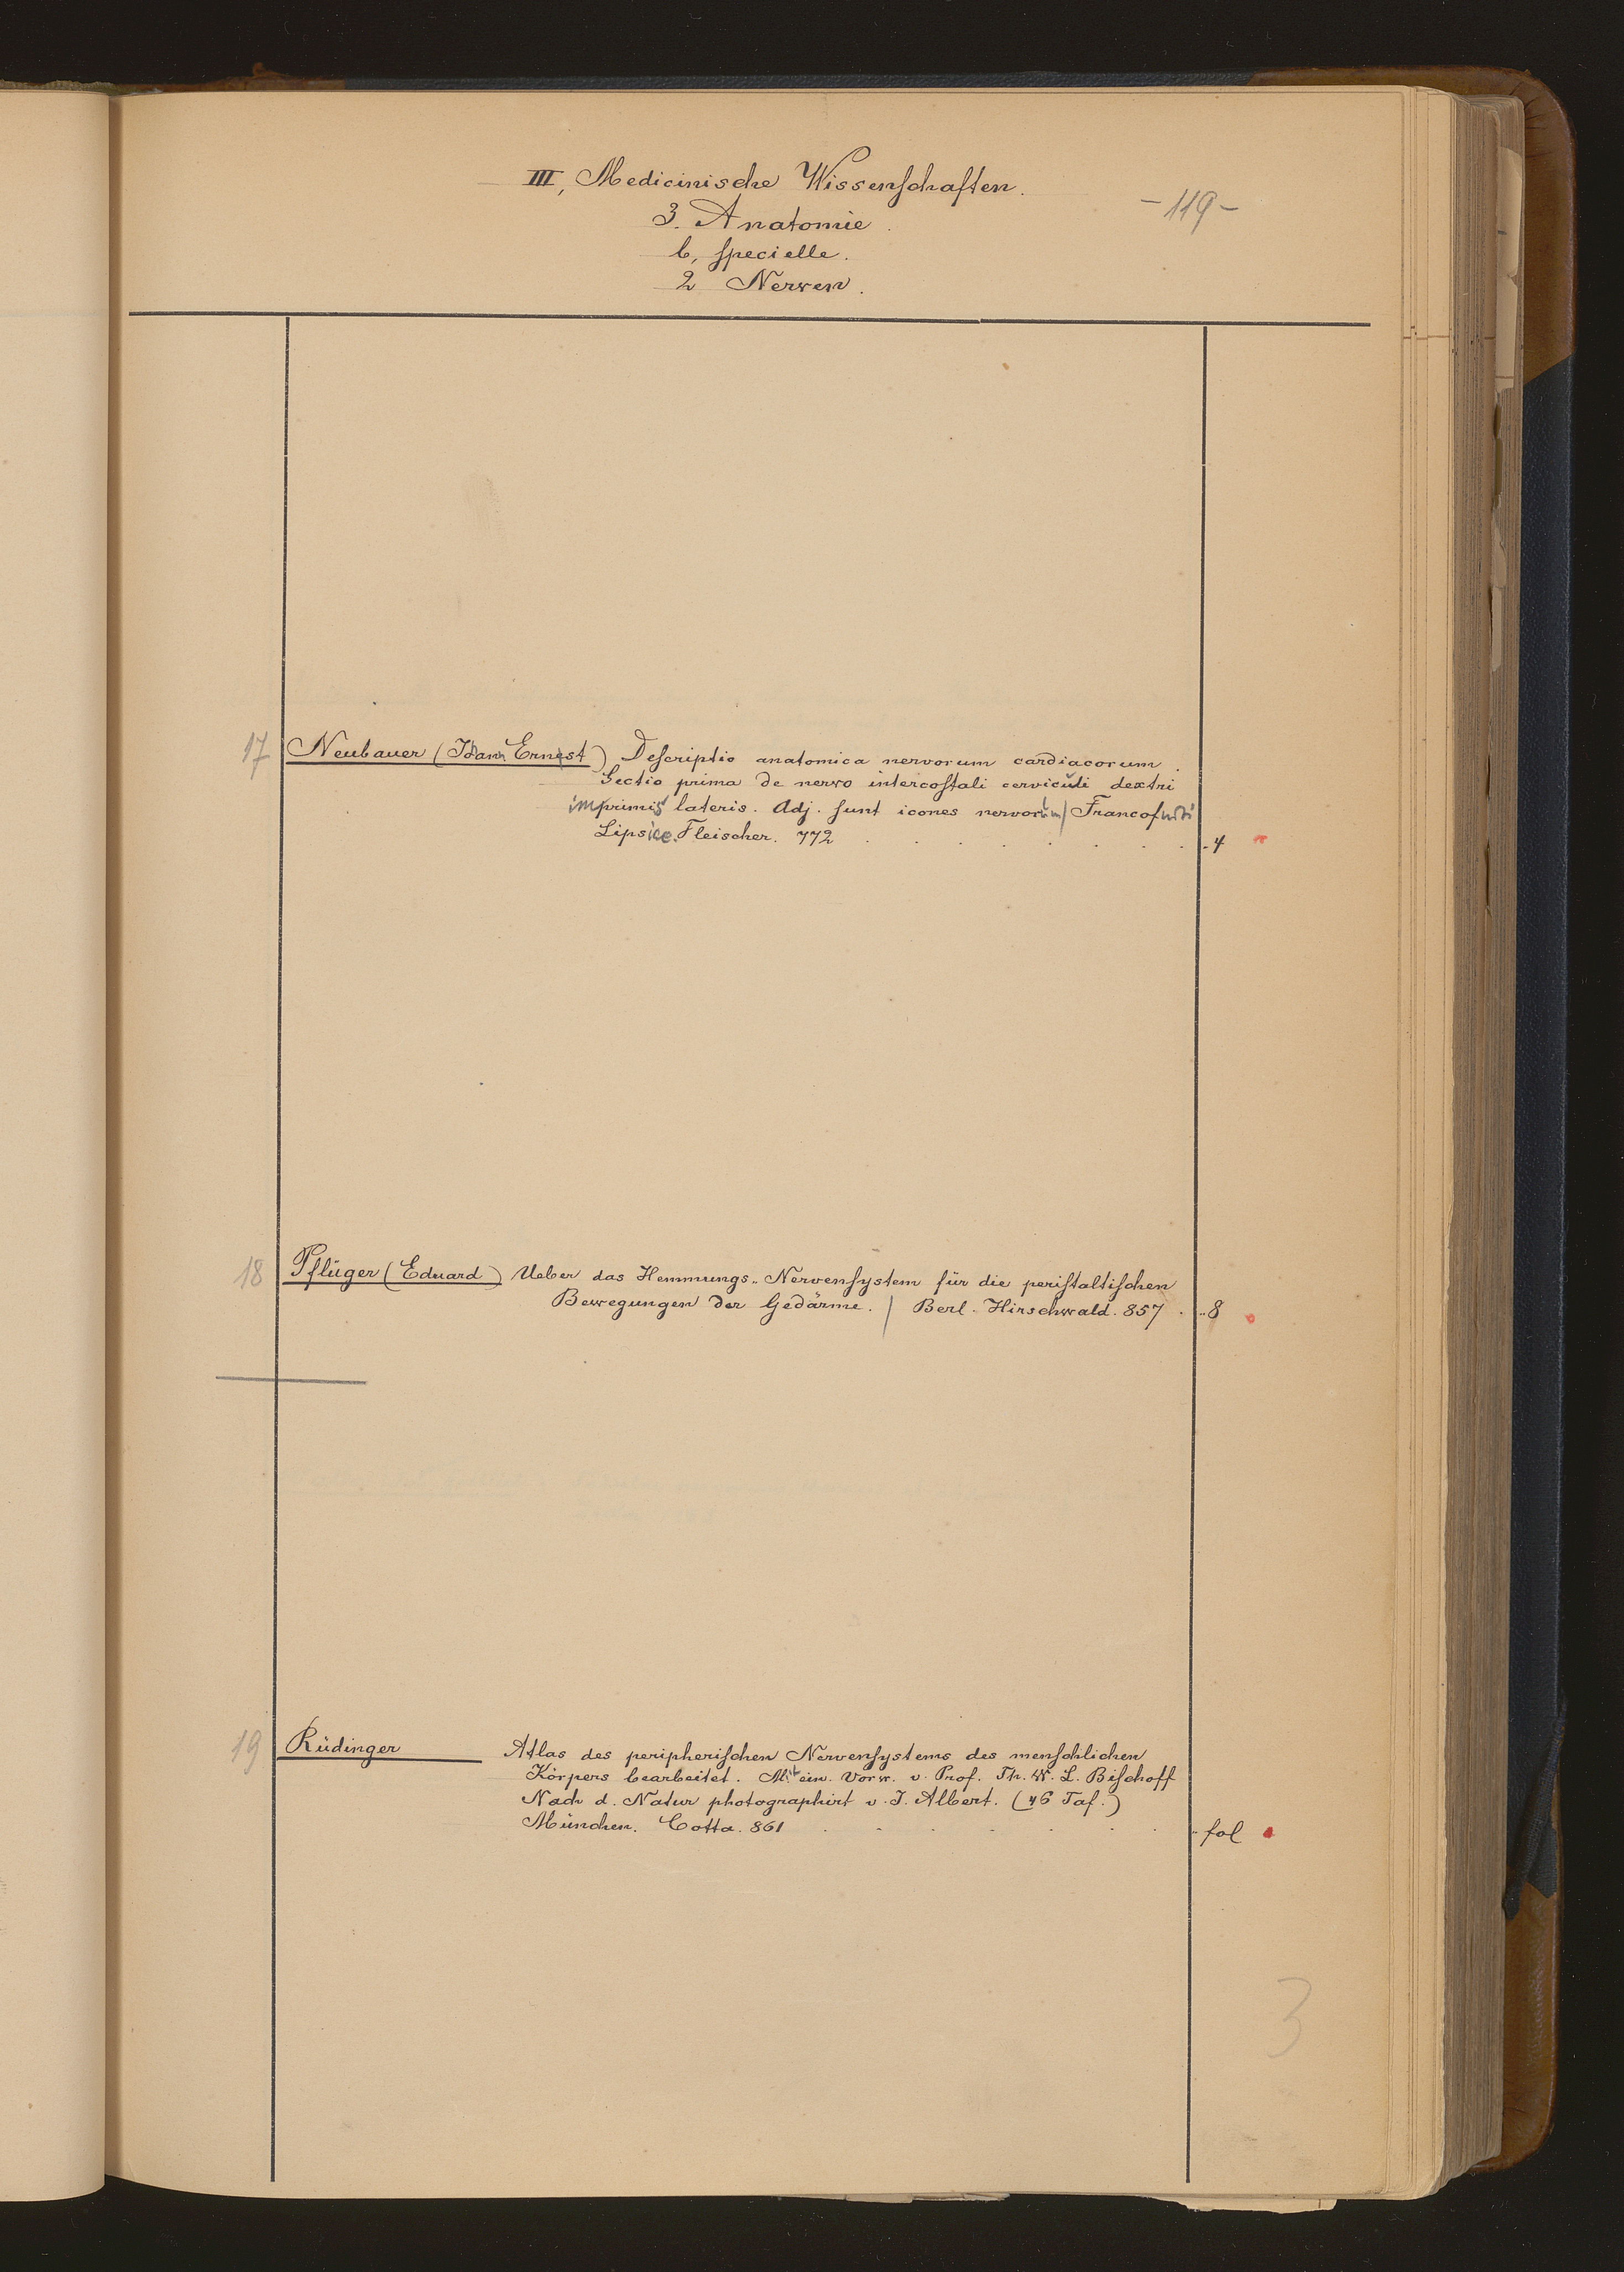 III, Medicinische Wissenschaften.
-119-
3. Anatomie.
b, specielle.
2 Nerven.
17 Neubauer (Joann Ernest) Descriptio anatomica nervorum cardiacorum.
Sectio prima de nervo intercostali cervicali dextri
imprimis lateris. Adj. sunt icones nervorum / Francofurti
Lipsiae. Fleischer. 772 . . . . . . . . 4
18 Pflüger (Eduard) Ueber das Hemmungs-Nervensystem für die peristaltischen
Bewegungen der Gedärme. / Berl. Hirschwald. 857 . . 8
19 Rüdinger Atlas des peripherischen Nervensystems des menschlichen
Körpers bearbeitet. Mit ein. Vorw. v. Prof. Th. W. L. Bischoff
Nach d. Natur photographirt v. J. Albert. (46 Taf.)
München. Cotta. 861 . . . . . . . fol
3